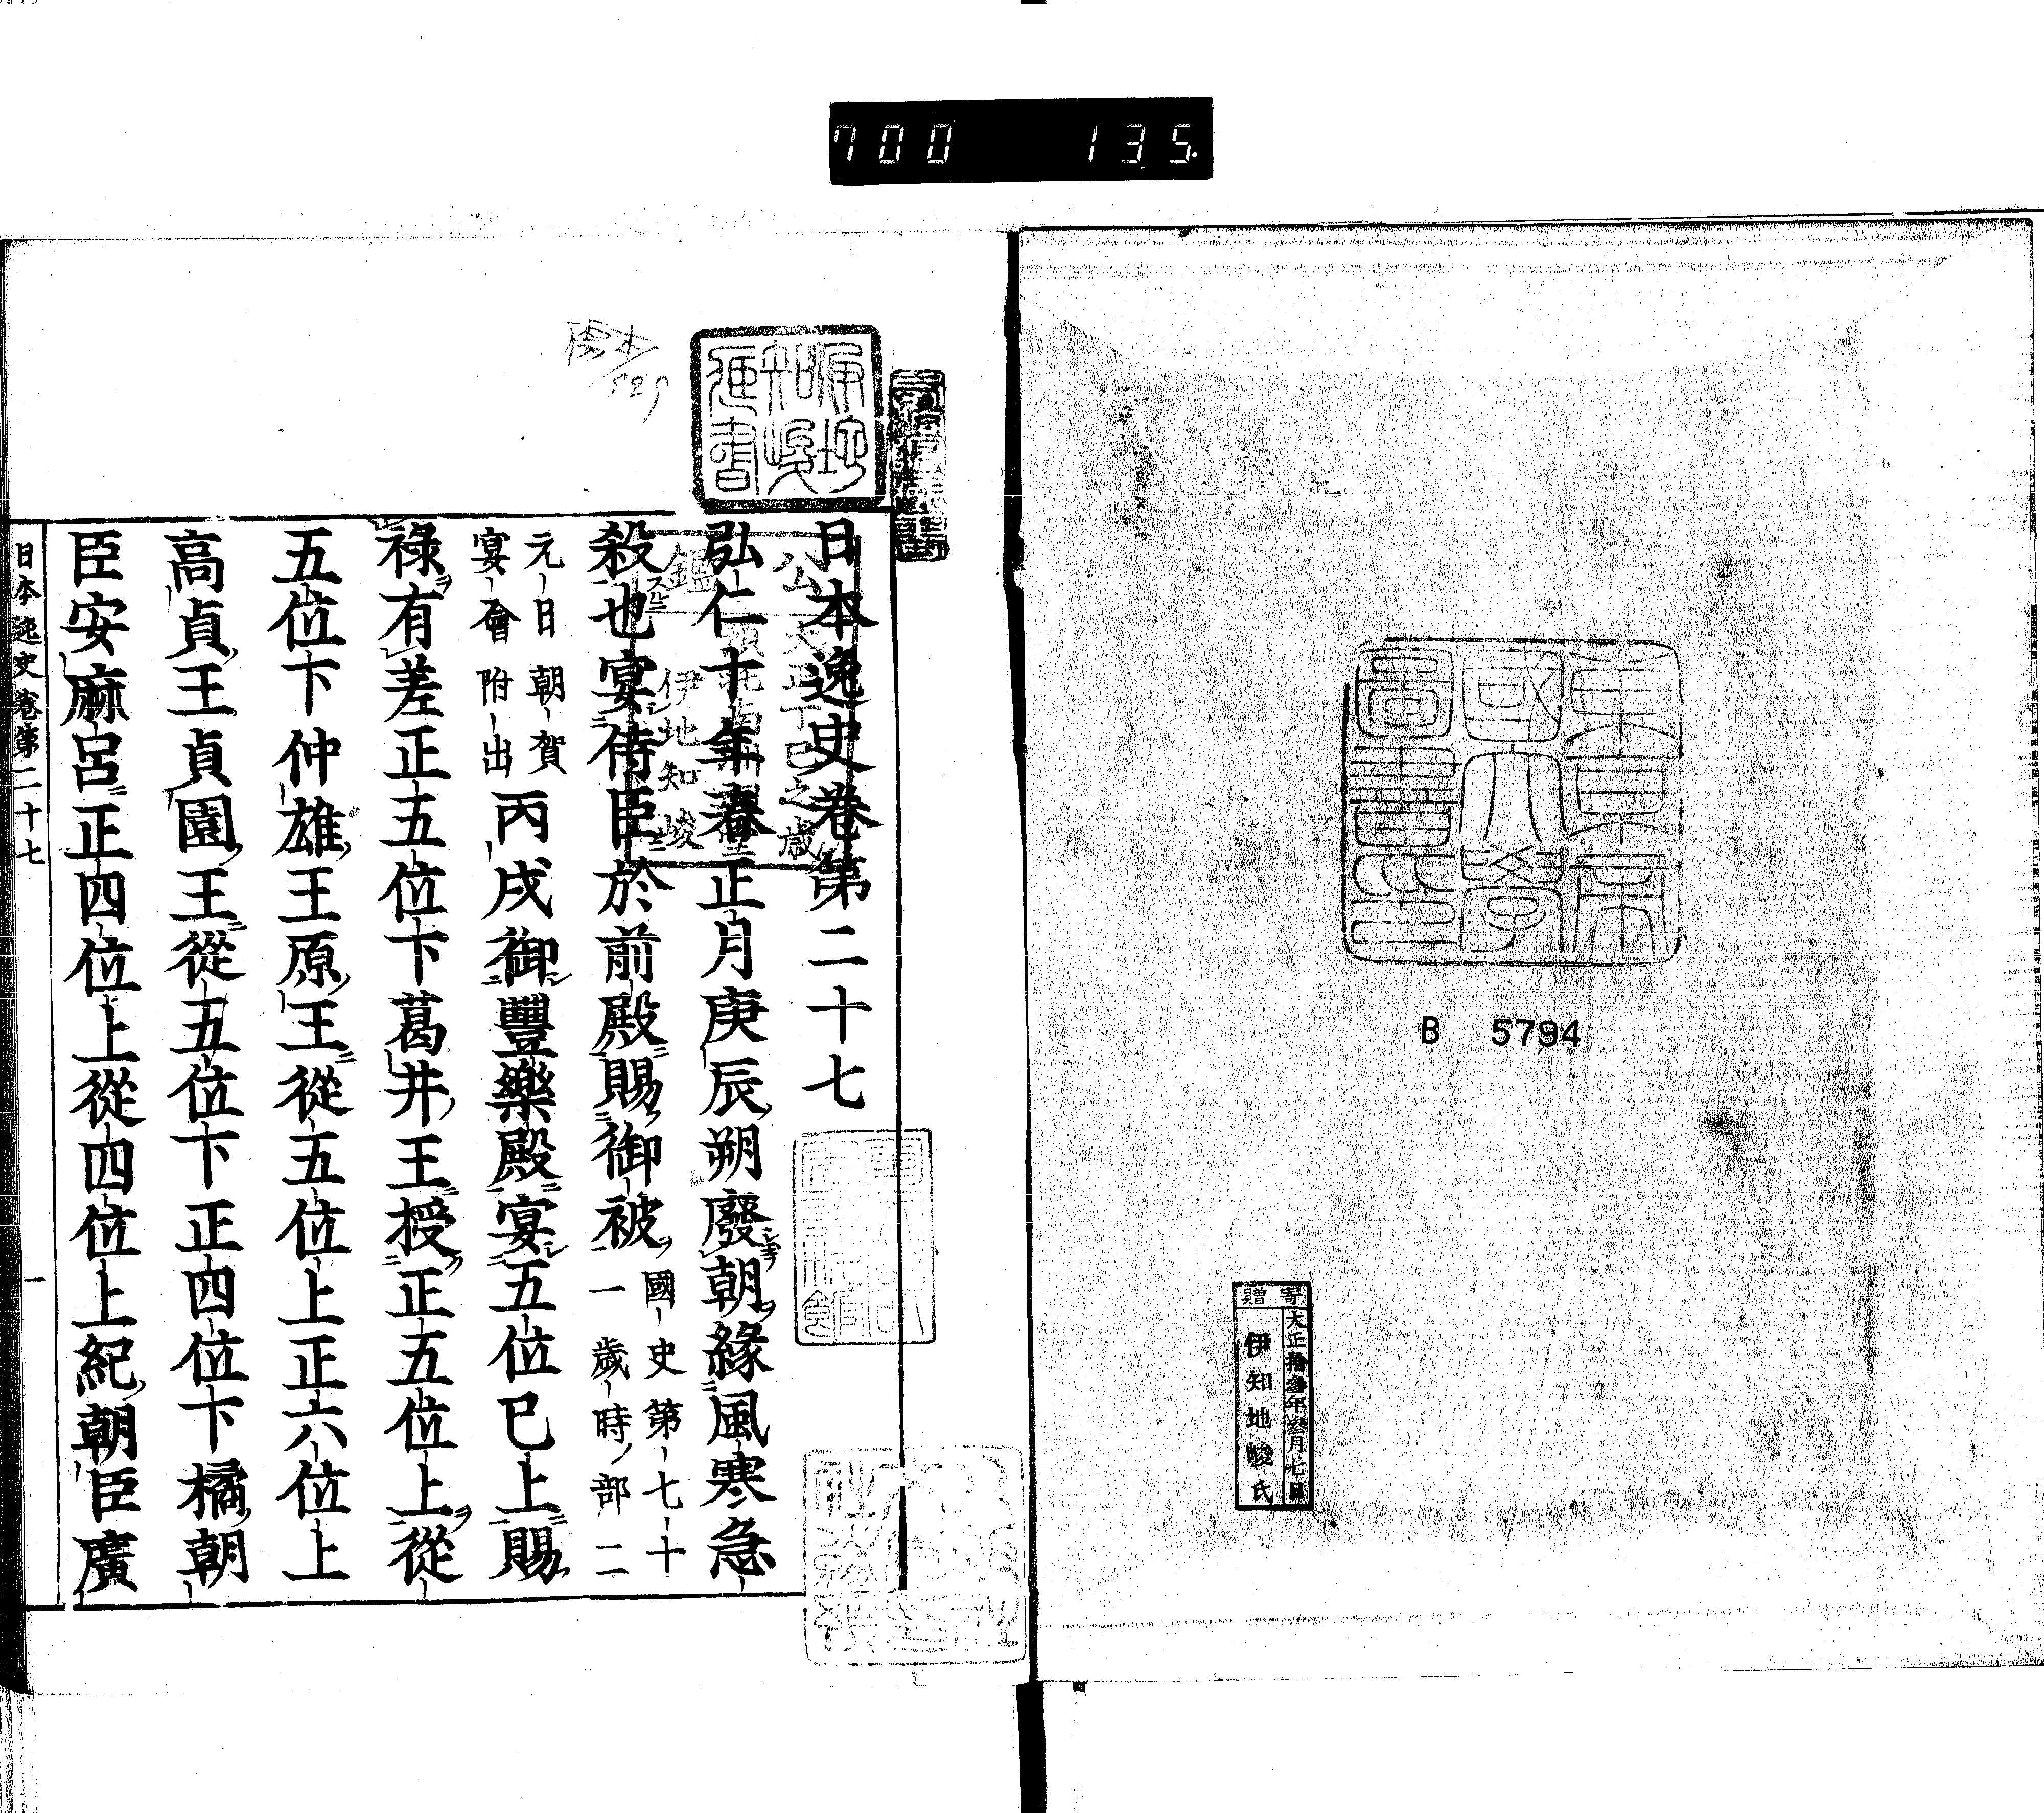 700 135.
東京帝
國大學
圖書印
B 5794
寄贈
大正拾參年參月七日
伊知地峻氏
日本逸史卷第二十七
弘仁十年春正月庚辰朔廢朝緣風寒急
殺也宴侍臣於前殿賜御被國史第七十一歲時部二
元日朝賀宴會附出丙戌御豐樂殿宴五位已上賜
祿有差正五位下葛井王授正五位上從
五位下仲雄王原王從五位上正六位上
高貞王貞園王從五位下正四位下橘朝
臣安麻呂正四位上從四位上紀朝臣廣
日本逸史卷第二十七
一